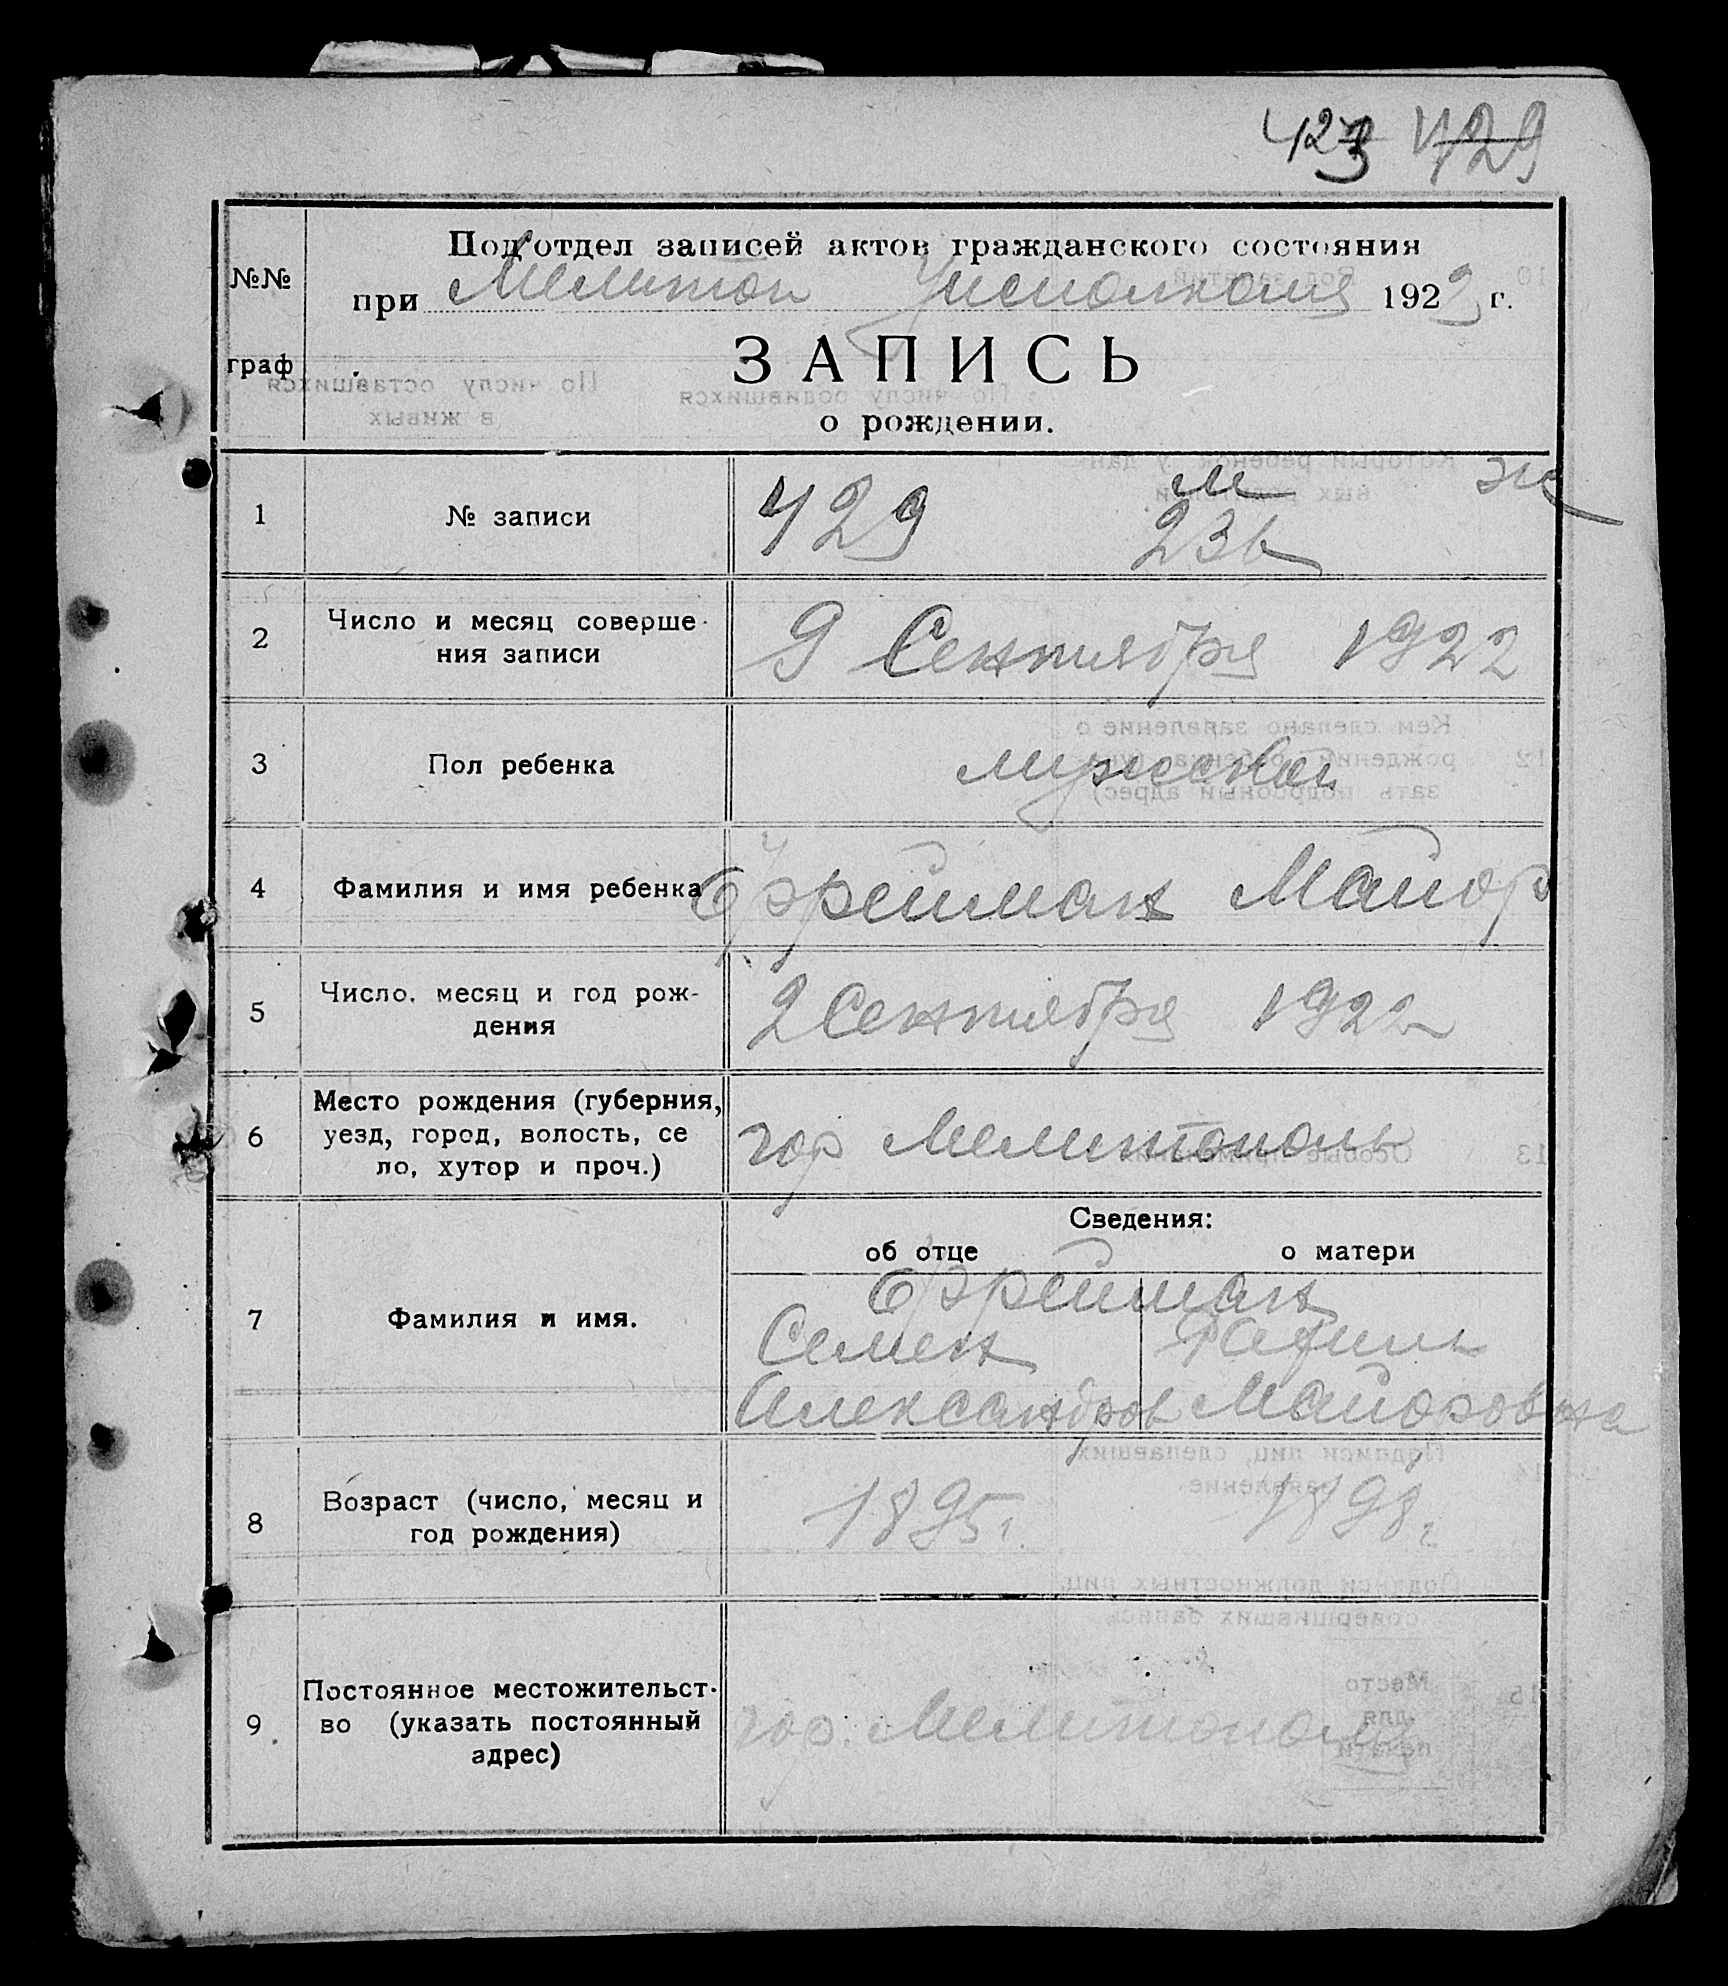 423 429
Подотдел записей актов гражданского состояния
№№
при Мелитоп Уисполкома 1922 г.
граф
ЗАПИСЬ
о рождении.
1 № записи 429 м ж
236
2 Число и месяц соверше-
ния записи 9 Сентября 1922
3 Пол ребенка мужской
4 Фамилия и имя ребенка Ефрейман Майор
5 Число, месяц и год рож-
дения 2 Сентября 1922
6 Место рождения (губерния,
уезд, город, волость, се
ло, хутор и проч.) гор Мелитополь
Сведения:
об отце о матери
7 Фамилия и имя. Ефрейман
Семен
Александров Майоровна
8 Возраст (число, месяц и
год рождения) 1895 г. 1898 г.
9. Постоянное местожительст-
во (указать постоянный
адрес) гор. Мелитополь